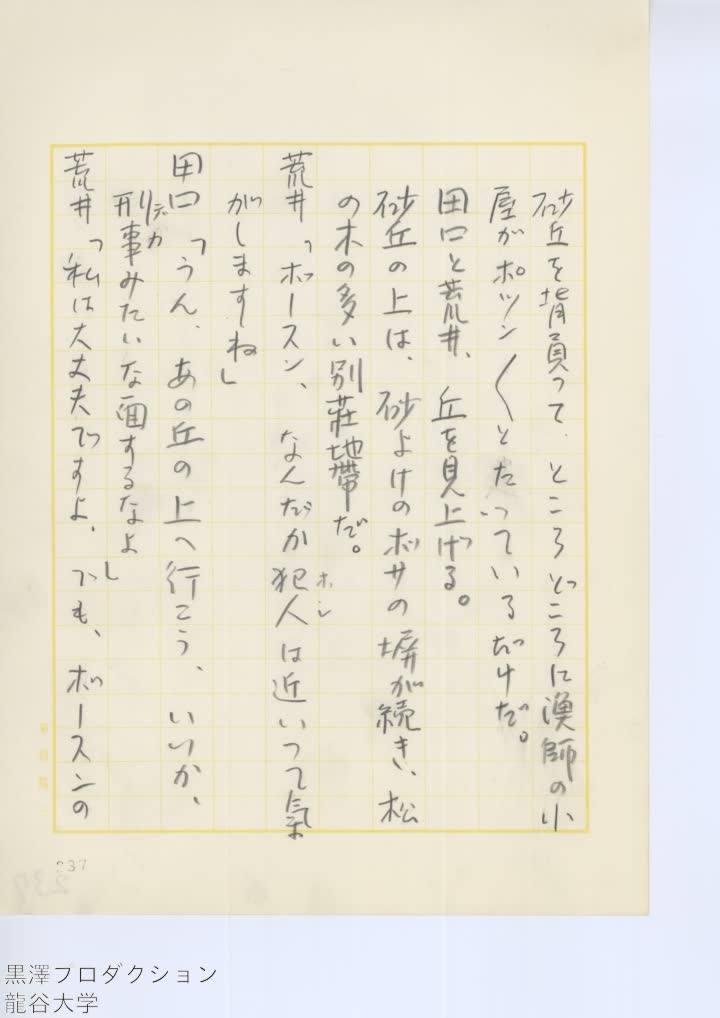 砂丘を背負って、ところどころに漁師の小
屋がポツン〱とたっているだけだ。
田口と荒井、丘を見上げる。
砂丘の上は、砂よけのボサの塀が続き、松
の木の多い別荘地帯だ。
荒井「ボースン、なんだか犯人は近いって氣
ホシ
がしますね」
田口「うん、あの丘の上へ行こう、いいか、
刑事みたいな面するなよ」
デカ
荒井「私は大丈夫ですよ、でも、ボースンの
237
黒澤プロダクション
龍谷大学